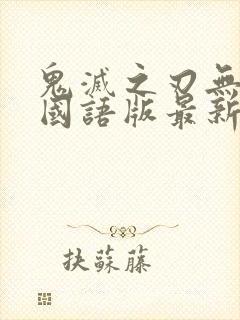 鬼滅之刃無
國語版最新
抉蘇藤